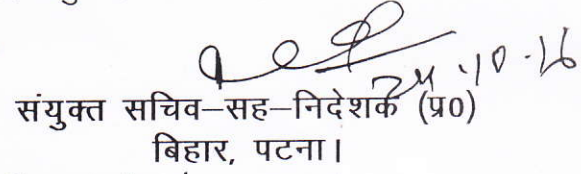 24.10.16
संयुक्त सचिव–सह–निदेशक (प्र0)
बिहार, पटना।